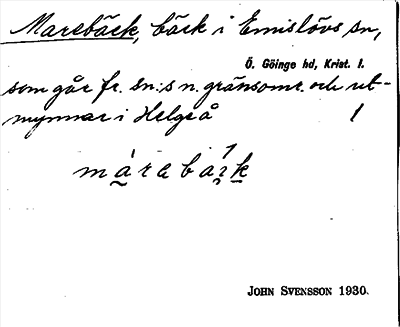 Marebäck, bäck i Emislövs sn,
Ö. Göinge hd, Krist. l.
som går fr. sn:s n. gränsomr. och ut-
mynnar i Helgeå
JOHN SVENSSON 1930.